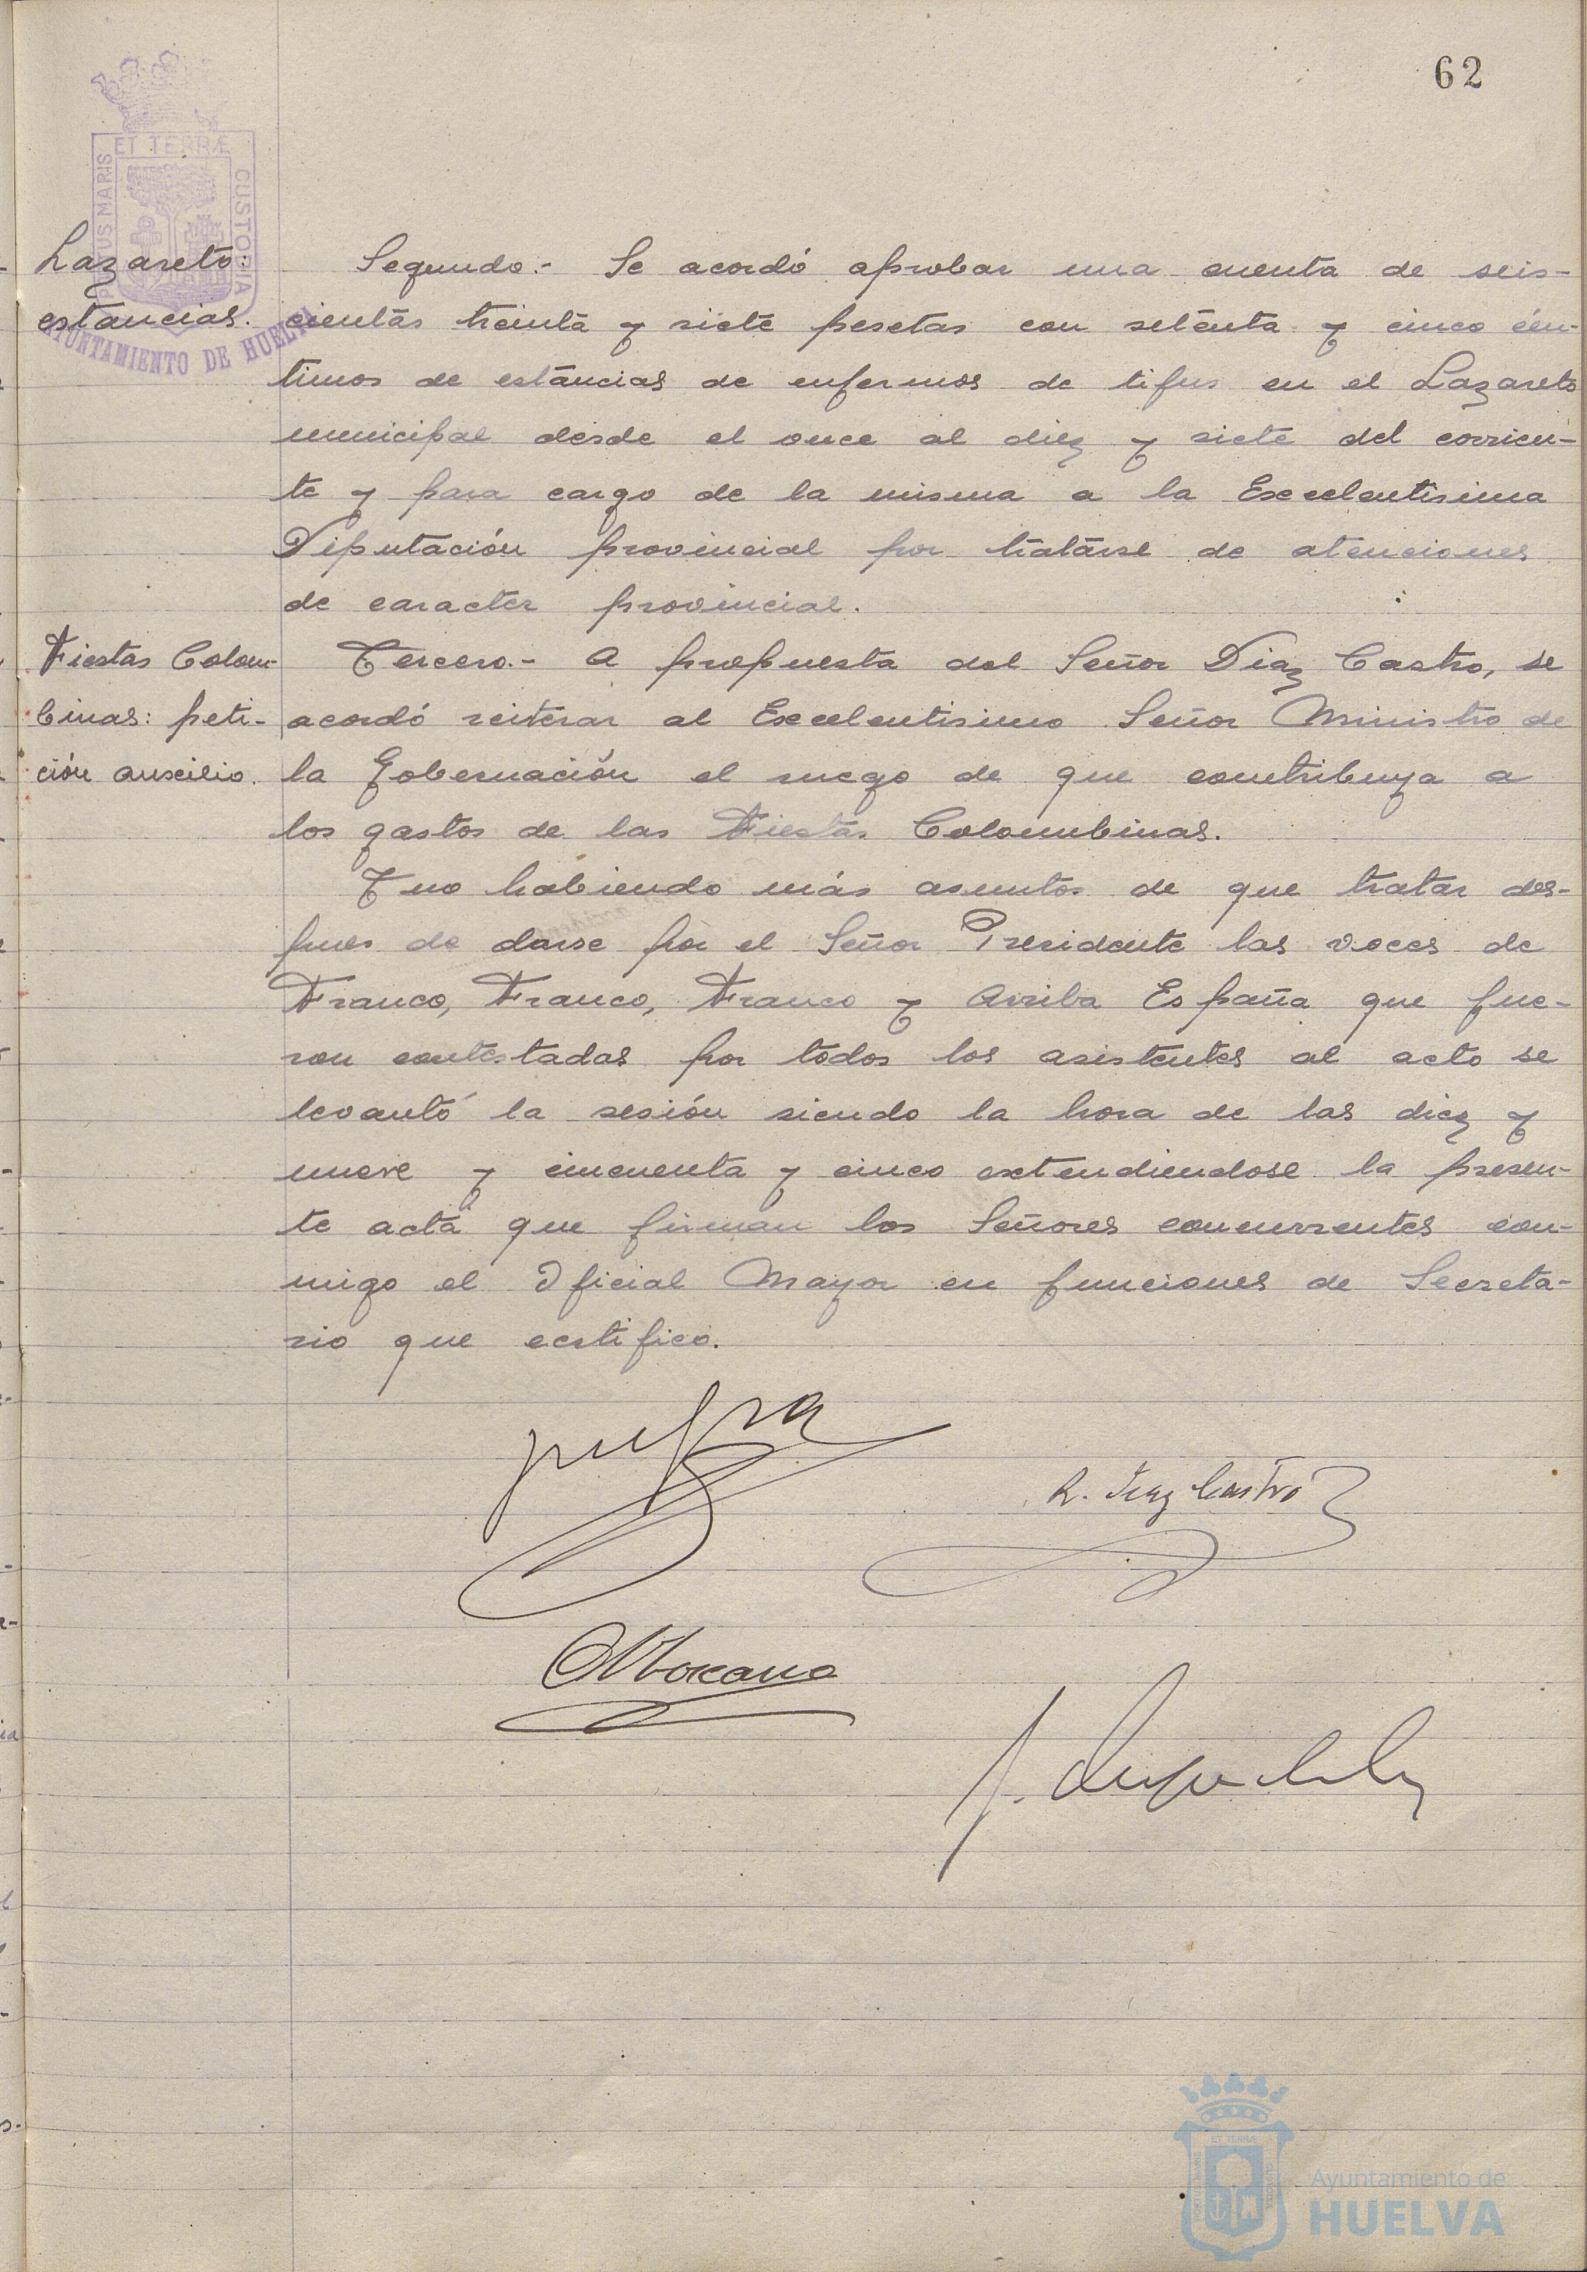 62
ET TERRÆ
PORTUS MARIS
CUSTODIA
AYUNTAMIENTO DE HUELVA
Lazareto:
estancias.
Segundo.- Se acordó aprobar una cuenta de seis-
cientas treinta y siete pesetas con setenta y cinco cén-
timos de estancias de enfermos de tifus en el Lazareto
municipal desde el once al diez y siete del corrien-
te y para cargo de la misma a la Excelentisima
Diputación provincial por tratarse de atenciones
de caracter provincial.
Fiestas Colom-
binas: peti-
ción auxilio.
Tercero.- A propuesta del Señor Diaz Castro, se
acordó reiterar al Excelentisimo Señor Ministro de
la Gobernación el ruego de que contribuya a
los gastos de las Fiestas Colombinas.
Y no habiendo más asuntos de que tratar des-
pues de darse por el Señor Presidente las voces de
Franco, Franco, Franco y Arriba España que fue-
ron contestadas por todos los asistentes al acto se
levantó la sesión siendo la hora de las diez y
nueve y cincuenta y cinco extendiendose la presen-
te acta que firman los Señores concurrentes con-
migo el Oficial Mayor en funciones de Secreta-
rio que certifico.
R. Diaz Castro
Ayuntamiento de
HUELVA